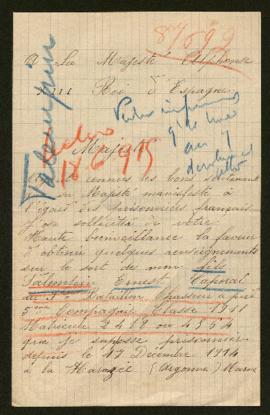 87692
A Sa Majesté Alphonse
XIII Roi d'Espagne
Talempin
Majesté
18-6-915
les bons sentiments
Majesté manifeste à
l'égard des prisonniers français
J'ose solliciter de votre
Haute bienveillance la faveur
d'obtenir quelques renseignements
sur le sort de mon fils
Ernest Caporal
au Bataillon Chasseurs à pied
5me Compagnie Classe 1911
Matricule 2419 ou 4354
que je suppose prisonnier
depuis le 17 Décembre 1914
à la Harazée (Argonne) Marne